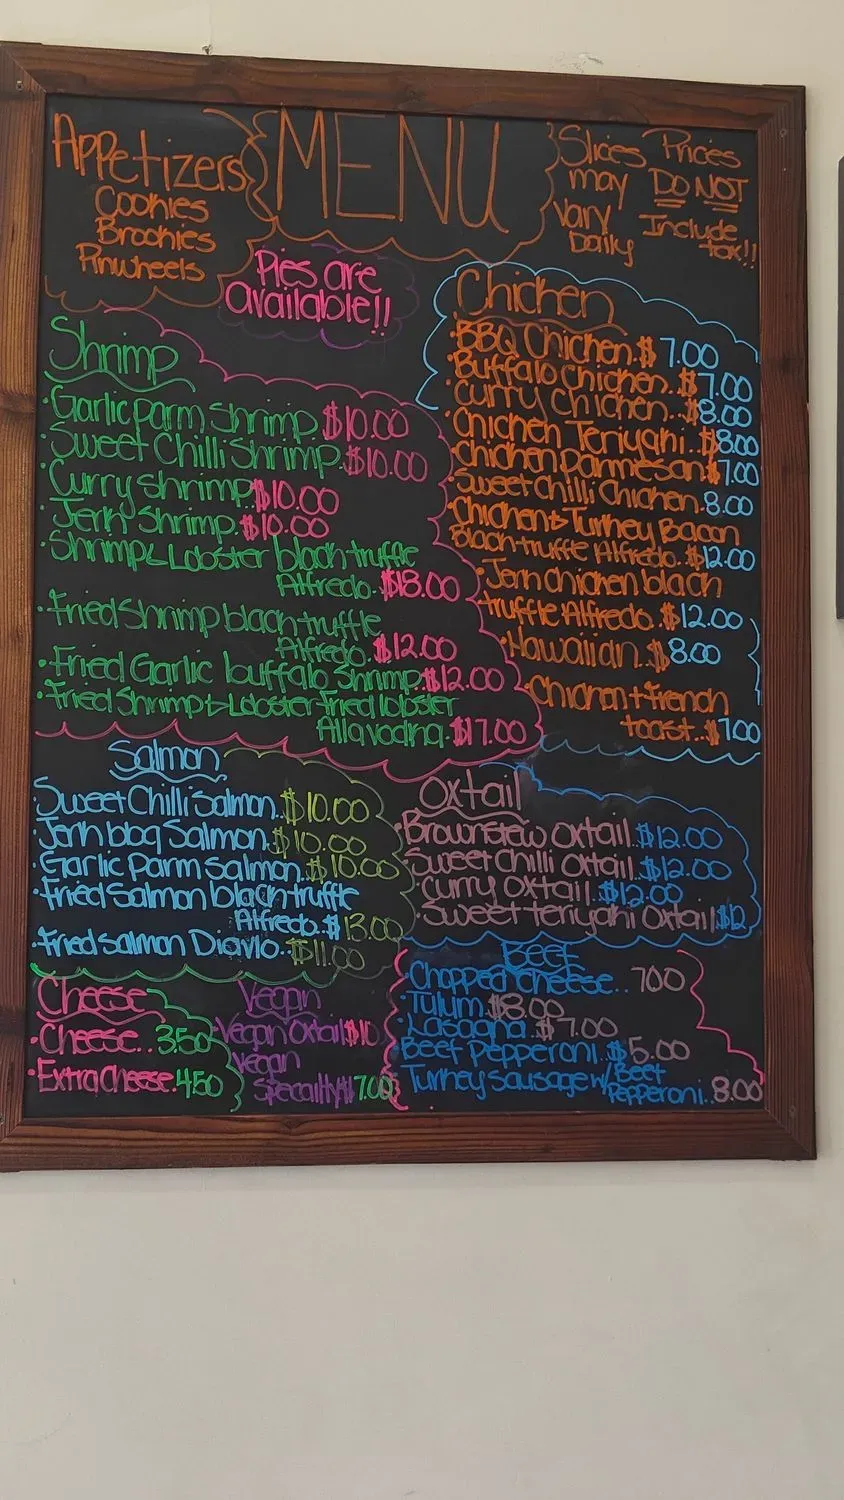 Appetizers
Cookies
Brookies
Pinwheels
MENU
Slices
may
vary
Daily
Prices
DO NOT
Include
tax!!
Pies are
available!!
Shrimp
·Garlic parm Shrimp.$10.00
·Sweet Chilli Shrimp.$10.00
·Curry shrimp.$10.00
·Jerk Shrimp.$10.00
·Shrimp & Lobster black truffle
Alfredo.$18.00
·Fried Shrimp black truffle
Alfredo.$12.00
·Fried Garlic buffalo Shrimp..$12.00
·Fried Shrimp & Lobster Fried lobster
Alla vodka.$17.00
Chicken
·BBQ Chicken.$7.00
·Buffalo Chicken..$7.00
·Curry Chicken..$8.00
·Chicken Teriyaki..$8.00
·Chicken parmesan$7.00
·Sweet Chilli Chicken.8.00
·Chicken & Turkey Bacon
Black truffle Alfredo..$12.00
·Jerk chicken black
truffle Alfredo.$12.00
·Hawaiian..$8.00
·Chicken + french
toast..$7.00
Salmon
·Sweet Chilli Salmon..$10.00
·Jerk bbq Salmon.$10.00
·Garlic Parm Salmon...$10.00
·Fried Salmon black truffle
Alfredo.$13.00
·Fried Salmon Diavlo..$11.00
Oxtail
·Brownstew Oxtail.$12.00
·Sweet Chilli Oxtail.$12.00
·Curry Oxtail.$12.00
·Sweet teriyaki Oxtail.$12
Cheese
·Cheese..3.50
·Extra Cheese.4.50
Vegan
·Vegan Oxtail$10
·Vegan
Specailty$7.00
Beef
·Chopped Cheese..7.00
·Tulum.$8.00
·Lasagna..$7.00
·Beef Pepperoni.$5.00
·Turkey Sausage w/ Beef
Pepperoni..8.00